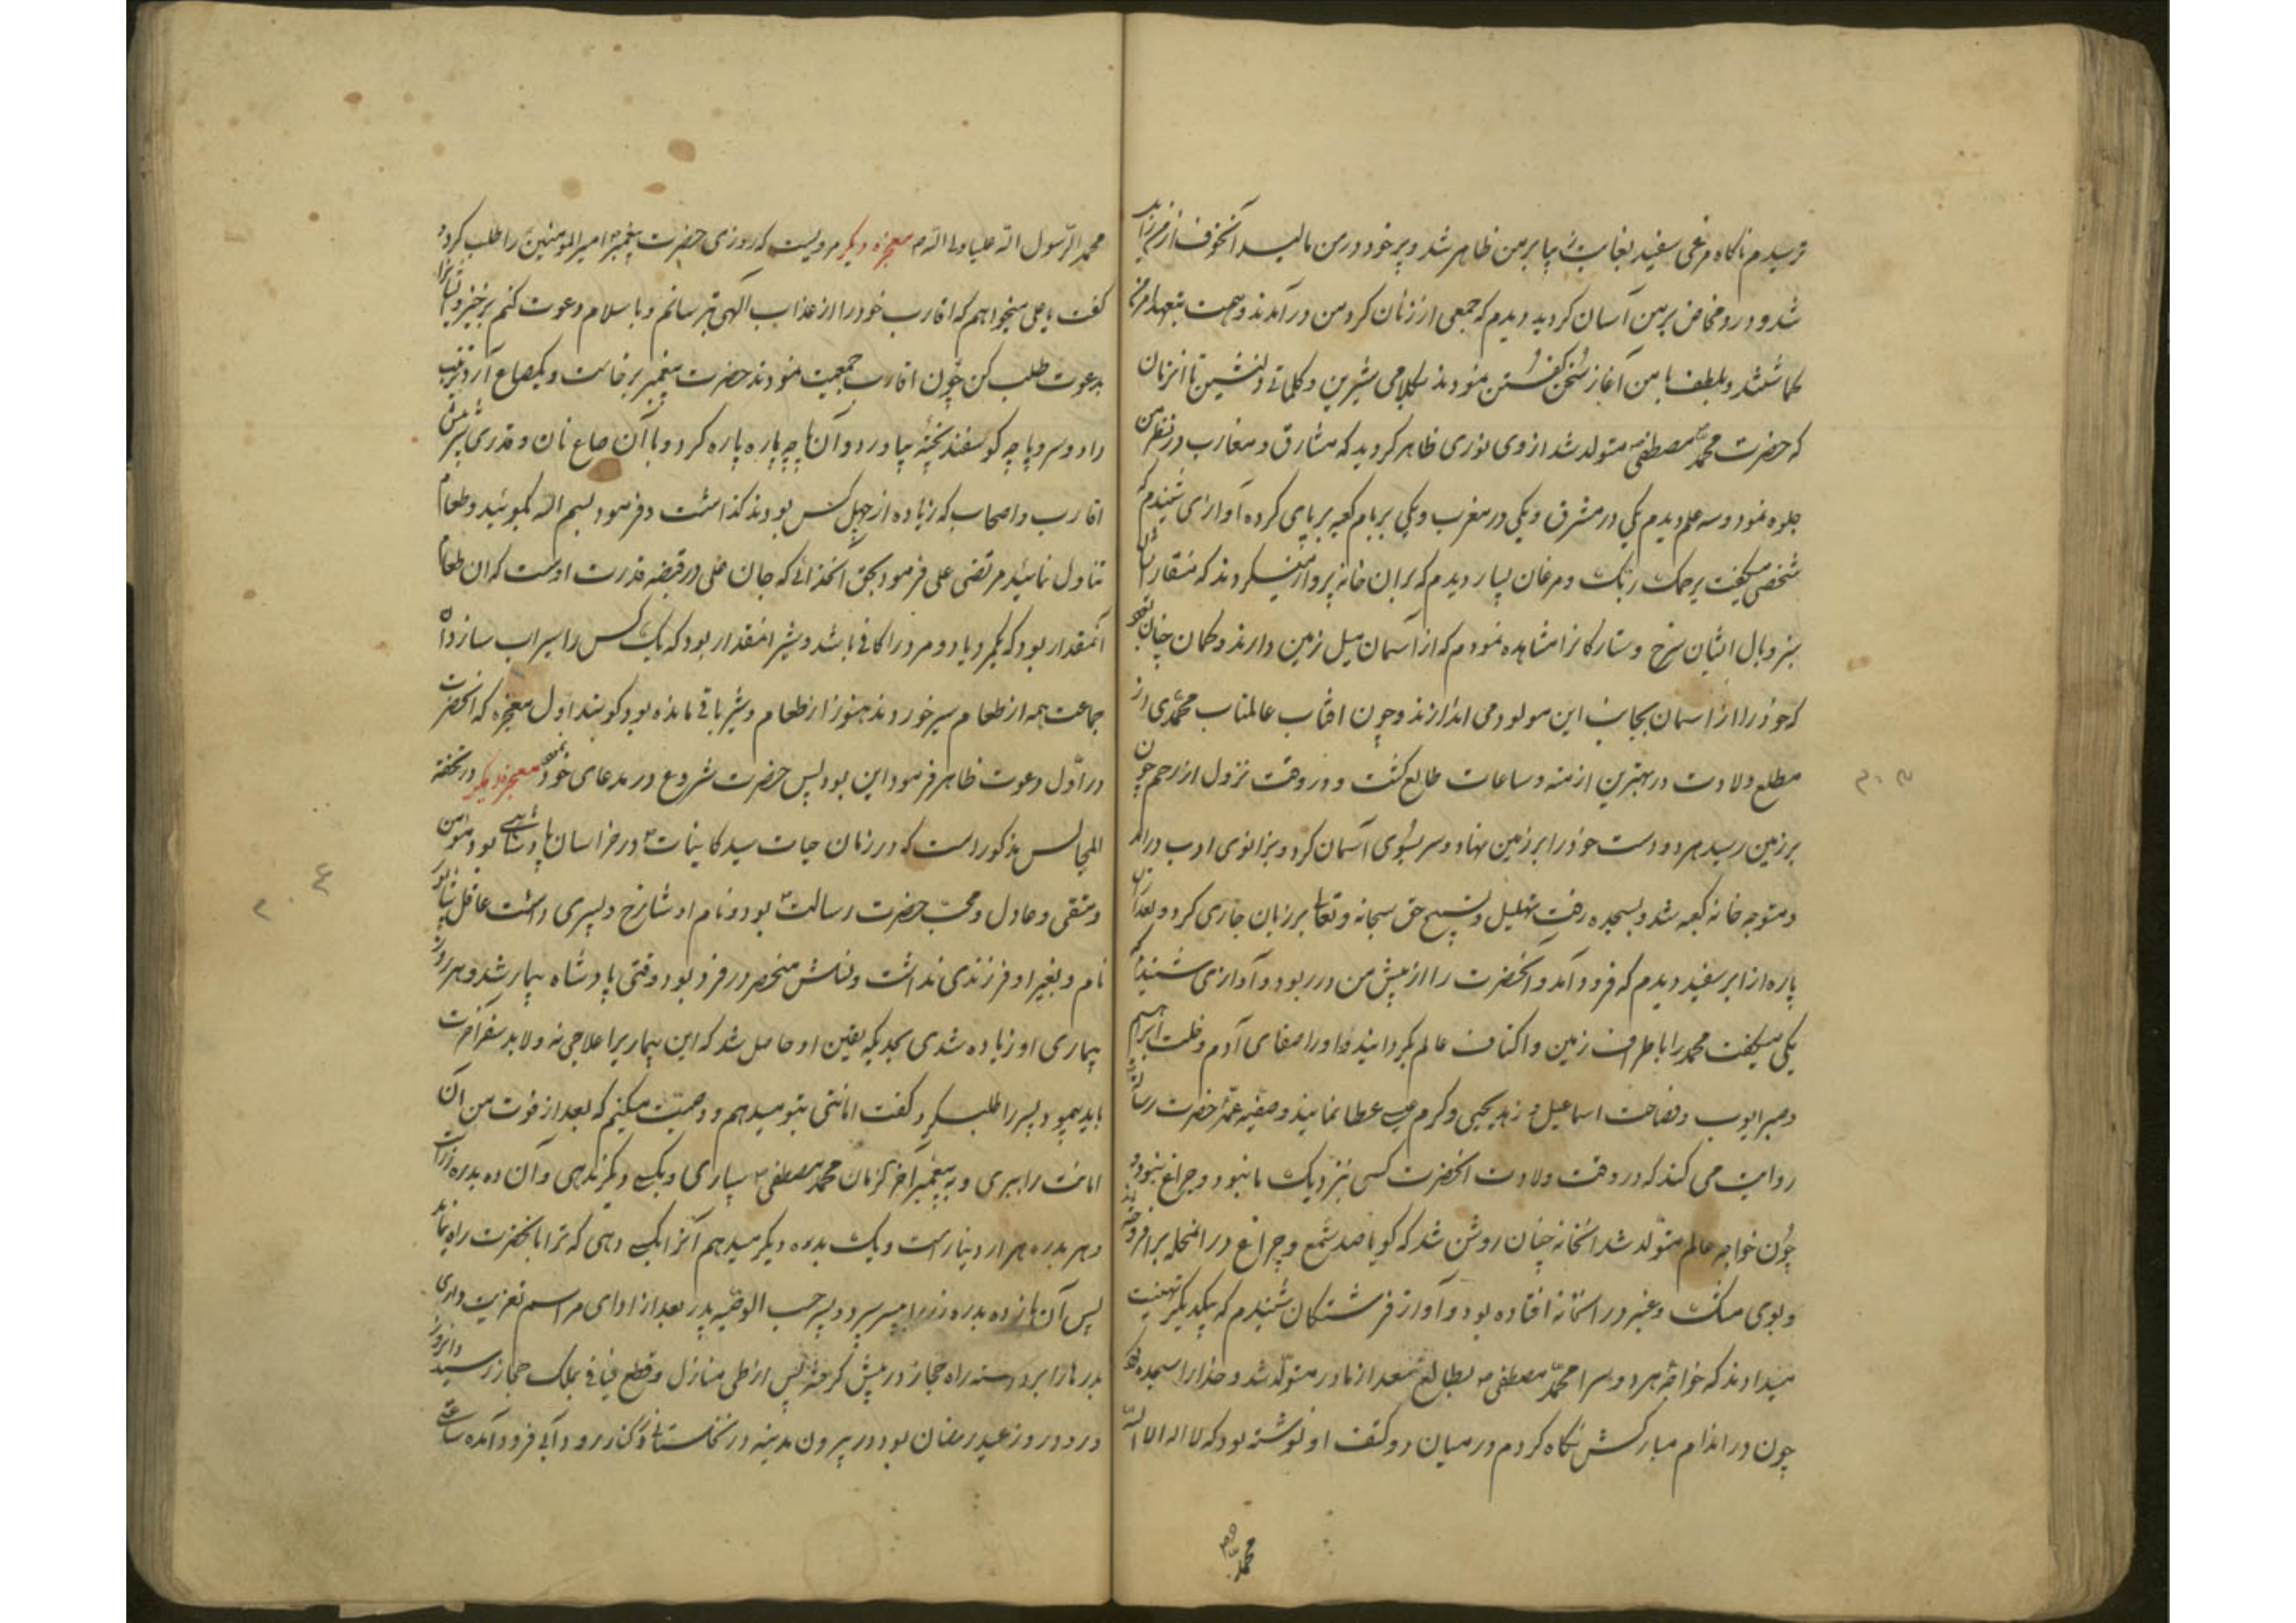 ترسیدم ناکاه مرغی سفید بغایت پیا بر من ظاهر شد و پر خود در من مالید آنخوف از من زایل
شد و درد مخاض بر من آسان کردید دیدم که جمعی از زنان کرد من در آمدند و همت بتعهد امر من
کماشتند و بلطف با من آغاز سخن کفتن نمودند بکلامی شیرین و کلماتی دلنشین تا آنزمان
که حضرت محمد مصطفی متولد شد از وی نوری ظاهر کردید که مشارق و مغارب در نظر من
جلوه نمود و سه علم دیدم یکی در مشرق و یکی در مغرب و یکی بر بام کعبه بر پای کرده آوازی شنیدم که
شخصی میکفت یرحمک ربک و مرغان بسیار دیدم که بران خانه پرواز میکردند که منقار ایشان
سبز و بال ایشان سرخ و ستارکانرا مشاهده نمودم که از آسمان میل زمین دارند و کمان چنان بود
که خود را از اسمان بجانب این مولود می اندازند و چون افتاب عالمتاب محمدی از
مطلع ولادت در بهترین ازمنه و ساعات طالع کشت و در وقت نزول از رحم چون
بر زمین رسید هر دو دست خود را بر زمین نهاد و سر بسوی آسمان کرد و بزانوی ادب درامد
و متوجه خانه کعبه شد و بسجده رفت تهلیل و تسبیح حق سبحانه و تعالی بر زبان جاری کرد و بعد از ان
پاره از ابر سفید دیدم که فرود آمد و آنحضرت را از پیش من در ربود و آوازی شنیدم که
یکی میکفت محمد را باطراف زمین و اکناف عالم بکردانید و او را صفای آدم و خلت ابراهیم
و صبر ایوب و فصاحت اسماعیل و زهد یحیی و کرم عیسی عطا نمایند و صفیه عمهٔ حضرت رسالت
روایت می کند که در وقت ولادت انحضرت کسی نزدیک ما نبود و چراغ نبود و
چون خواجه عالم متولد شد انخانه چنان روشن شد که کویا صد شمع و چراغ در انمحله برافروخته اند
و بوی مشک و عنبر در انخانه افتاده بود و آواز فرشتکان شنیدم که یکدیکر تهنیت
میدادند که خواجهٔ هر دو سرا محمد مصطفی بطالع سعد از مادر متولد شد و خدا را سجده کرد
چون در اندام مبارکش نکاه کردم در میان دو کتف او نوشته بود که لا اله الا الله
محمد
محمد الرسول الله علیا ولی الله معجزه دیکر مرویست که روزی حضرت پیغمبر امیرالمومنین را طلب کرد و
کفت یا علی میخواهم که اقارب خود را از عذاب آلهی بترسانم و با سلام دعوت کنم برخیز و ایشانرا
بدعوت طلب کن چون اقارب جمعیت نمودند حضرت پیغمبر برخاست و یکصاع آرد ترتیب
داد و سر و پاچه کوسفند پخته بیاورد و آن پاچه پاره پاره کرد و با آن صاع نان و قدری شیر پیش
اقارب و اصحاب که زیاده از چهل کس بودند کذاشت و فرمود بسم الله بکوئید و طعام
تناول نمائید مرتضی علی فرمود بحق آنخدائی که جان علی در قبضه قدرت اوست که ان طعام
آنمقدار بود که یکمرد یا دو مرد را کافی باشد و شیر انمقدار بود که یک کس را سیراب سازد آن
جماعت همه از طعام سیر خوردند هنوز از طعام و شیر باقی مانده بود و کویند اول معجزه که انحضرت
در اول دعوت ظاهر فرمود این بود پس حضرت شروع در مدعای خود نمود معجزه دیکر در تحفة
المجالس مذکور است که در زمان حیات سید کاینات در خراسان پادشاهی بود مومن
و متقی و عادل و محب حضرت رسالت بود و نام او شارخ و پسری داشت عاقل شاپور
نام و بغیر او فرزندی نداشت و نسلش منحصر در فرد بود وقتی پادشاه بیمار شد و هر روز
بیماری او زیاده شدی بحدیکه یقین او حاصل شد که این بیماریرا علاجی نه و لابد سفر آخرت
باید پیمود پسر را طلب کرد کفت امانتی بتو میدهم و وصیت میکنم که بعد از فوت من آن
امانت را ببری و به پیغمبر آخر الزمان محمد مصطفی سپاری و بکسی دیکر ندهی و آن ده بدره زر است
و هر بدره هزار دینار است و یک بدره دیکر میدهم آنرا بکسی دهی که ترا بانحضرت راه نماید
پس آن یازده بدره زر را به پسر سپرد و پسر حسب الوصیه پدر بعد از ادای مراسم تعزیت داری
بدرها را برداشته راه حجاز در پیش کرفته پس از طی منازل و قطع فیافی بملک حجاز رسید و انروز
ورود روز عید رمضان بود در بیرون مدینه در نخلستانی و کنار رود آبی فرود آمده ساعتی